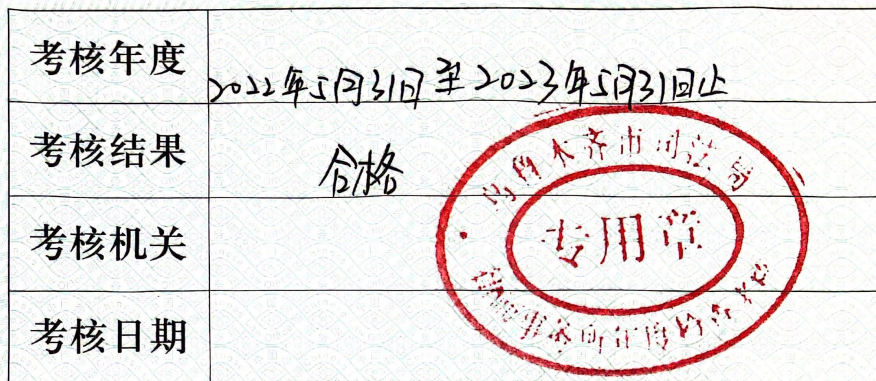 考核年度
2022年5月31日至2023年5月31日止
考核结果
合格
乌鲁木齐市司法局
专用章
律师事务所年度检查考核
考核机关
考核日期